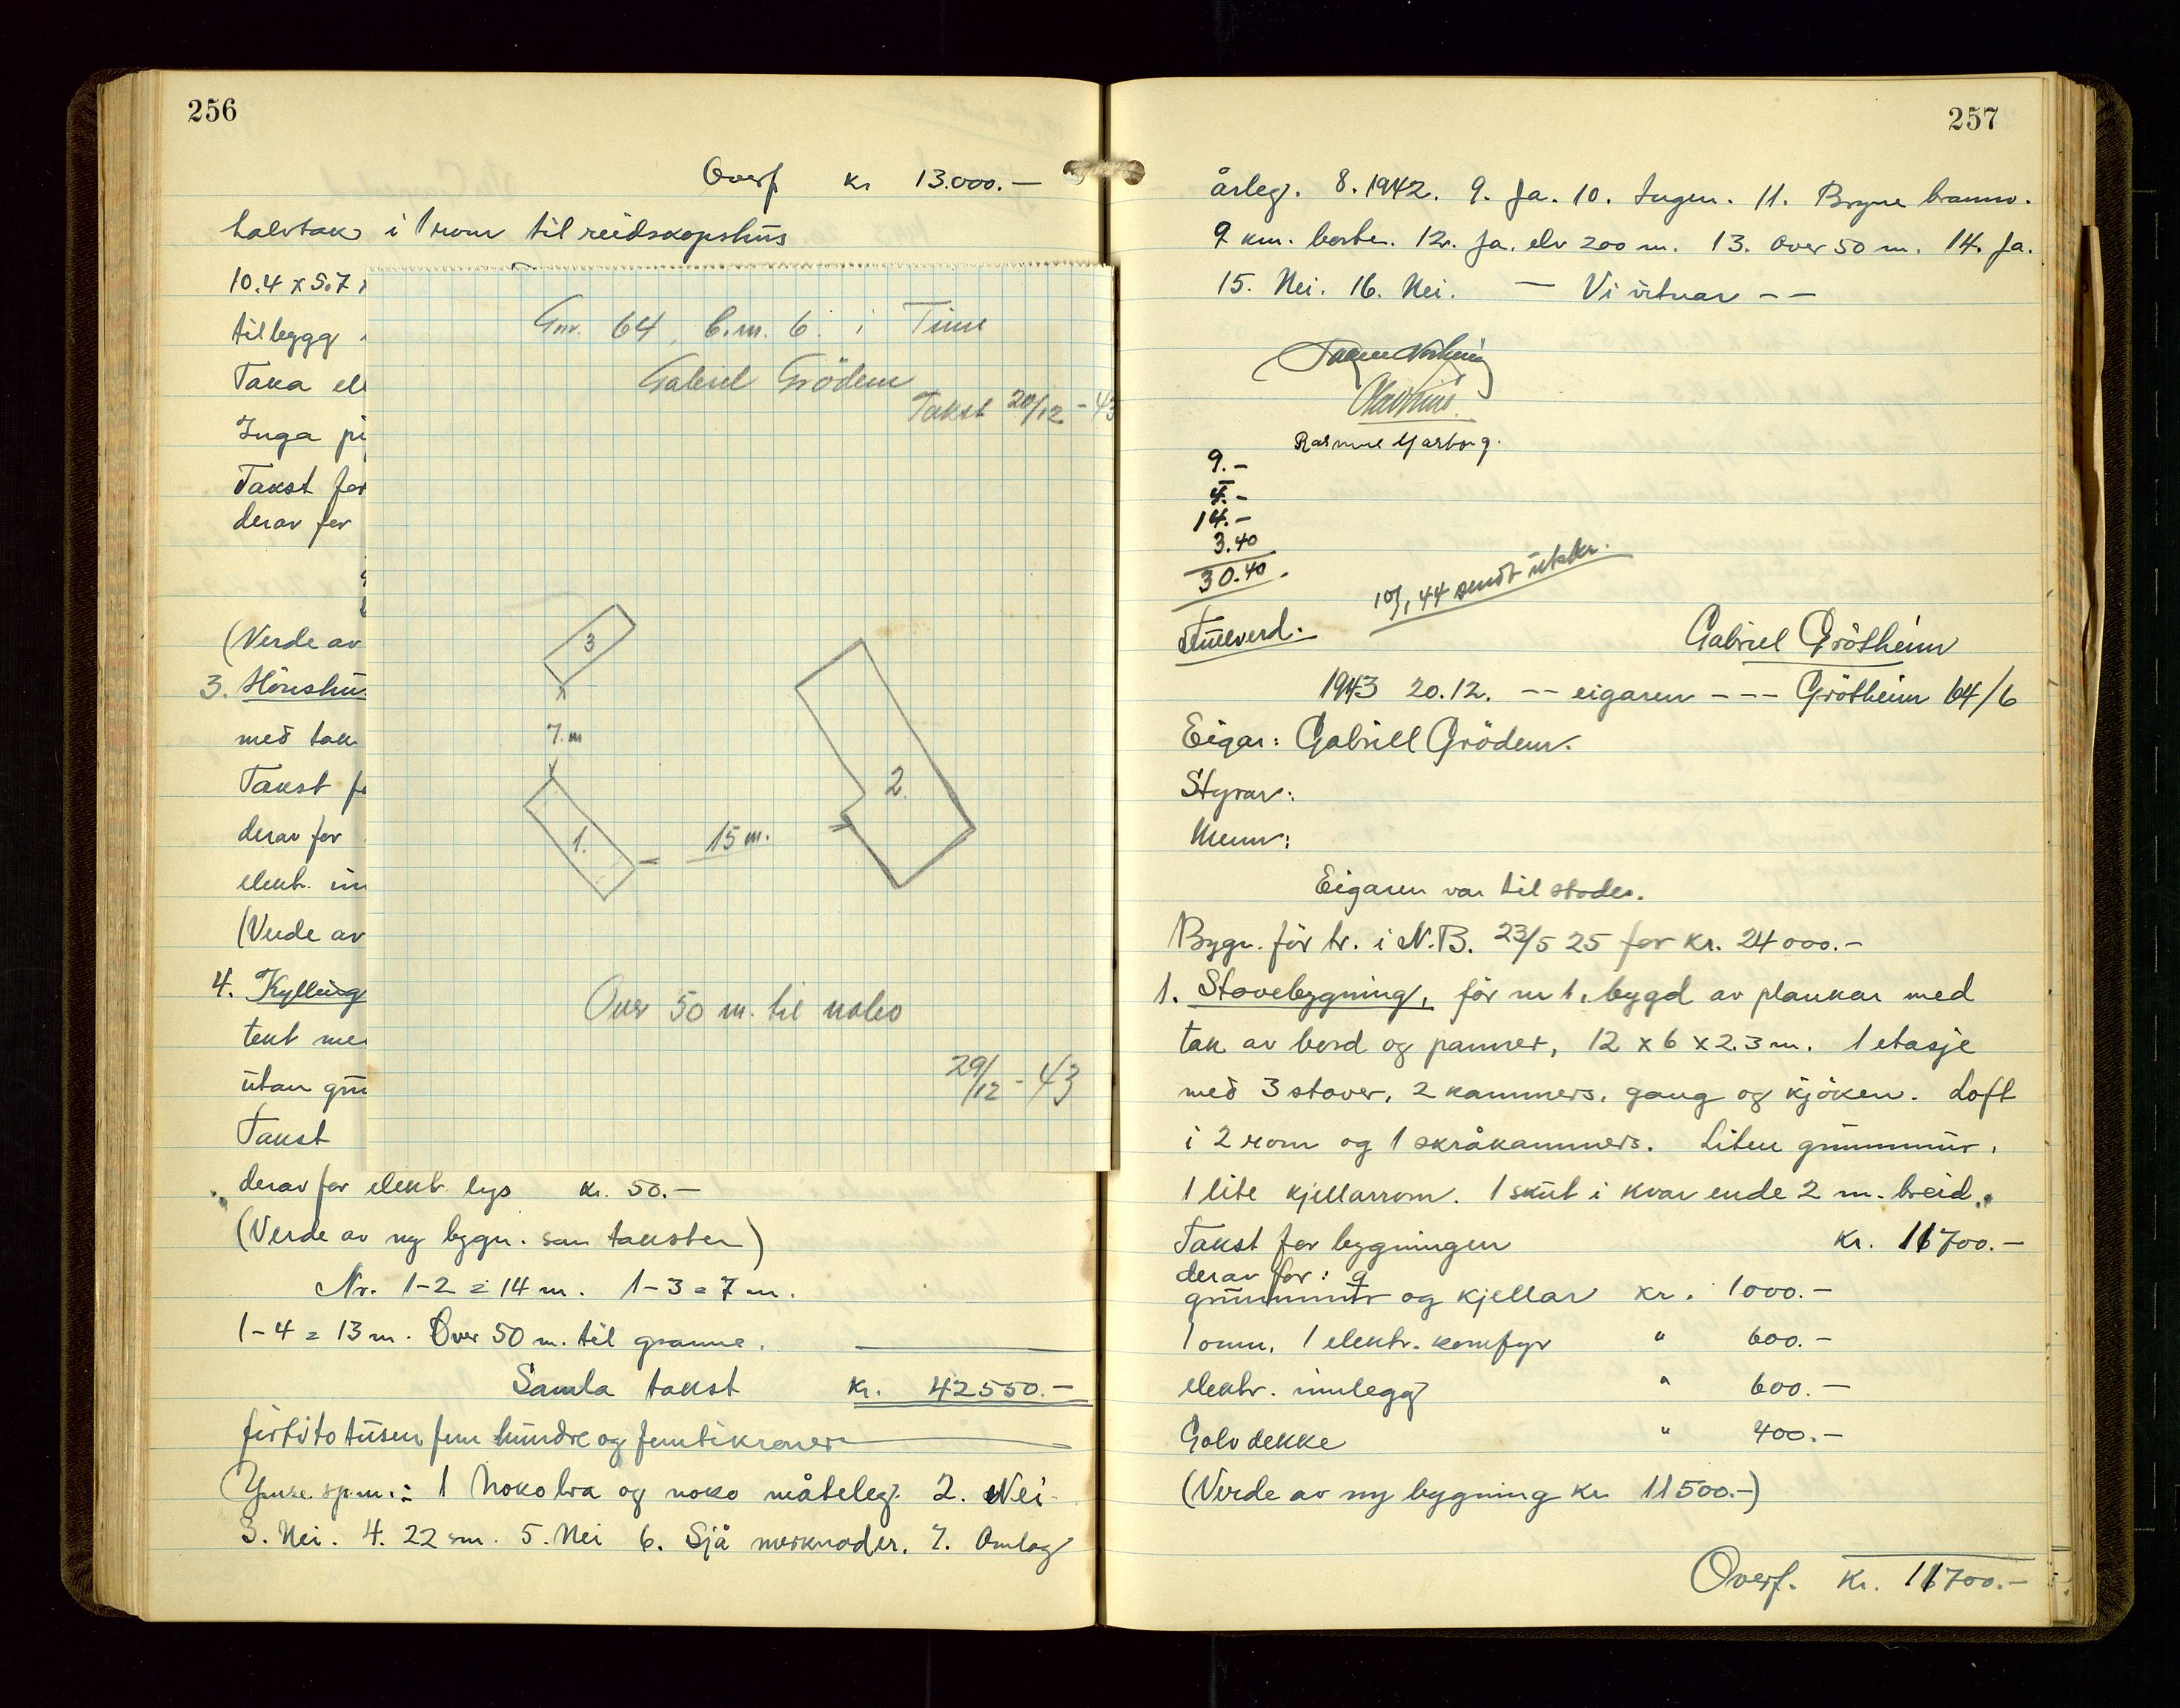 256
Overf kr 13.000.—
halvtak i 1 rom til reidskapshus
10.4 x 5.7 x
tilbygg
Taka el
Inga pi
Takst for
derav for
(Verde av
3. Hønshu
med tak
Takst fo
derav for
elektr. in
(Verde av
4. Kylling
tekt me
utan gru
Takst
derav for elektr. lys kr. 50.—
(Verde av ny bygn. som taksten)
Nr. 1-2 = 14 m. 1-3 = 7 m.
1-4 = 13 m. Over 50 m. til granne.
Samla takst kr. 42550.—
førtito tusen fem hundre og femti kroner
Ymse sp.m.: 1 Noko bra og noko måteleg. 2. Nei
3. Nei. 4. 22 sm. 5. Nei 6. Sjå merknader. 7. Omlag
Gnr. 64, b.nr. 6. i Time
Gabriel Grödem
Takst 20/12 - 43
3
7. m
1.
15 m.
2.
Over 50 m. til nabo
29/12 - 43
257
årleg. 8. 1942. 9. Ja. 10. Ingen. 11. Bryne brannv.
9 km. borte. 12. Ja. elv 200 m. 13. Over 50 m. 14. Ja.
15. Nei. 16. Nei. — Vi vitnar — —
Rasmus Garborg.
9.-
4.-
14.-
3.40
30.40.
10/1 44 sendt utskr.
Fullverd.
Gabriel Grötheim
1943 20.12. -- eigaren --- Grötheim 64/6
Eigar: Gabriell Grödem.
Styrar:
Menn:
Eigaren var til stades.
Bygn. för tr. i N.B. 23/5 25 for kr. 24000.—
1. Stovebygning, för nr 1, bygd av plankar med
tak av bord og panner, 12 x 6 x 2.3 m. 1 etasje
med 3 stover, 2 kammers, gang og kjöken. Loft
i 2 rom og 1 skråkammers. Liten grunnmur,
1 lite kjellarrom. 1 skut i kvar ende 2 m. breid.
Takst for bygningen kr. 11700.—
derav for:
grunnmur og kjellar kr. 1000.—
1 omn, 1 elektr. komfyr " 600.—
elektr. innlegg " 600.—
Golvdekke " 400.—
(Verde av ny bygning kr 11500.—)
Overf. kr. 11700.—